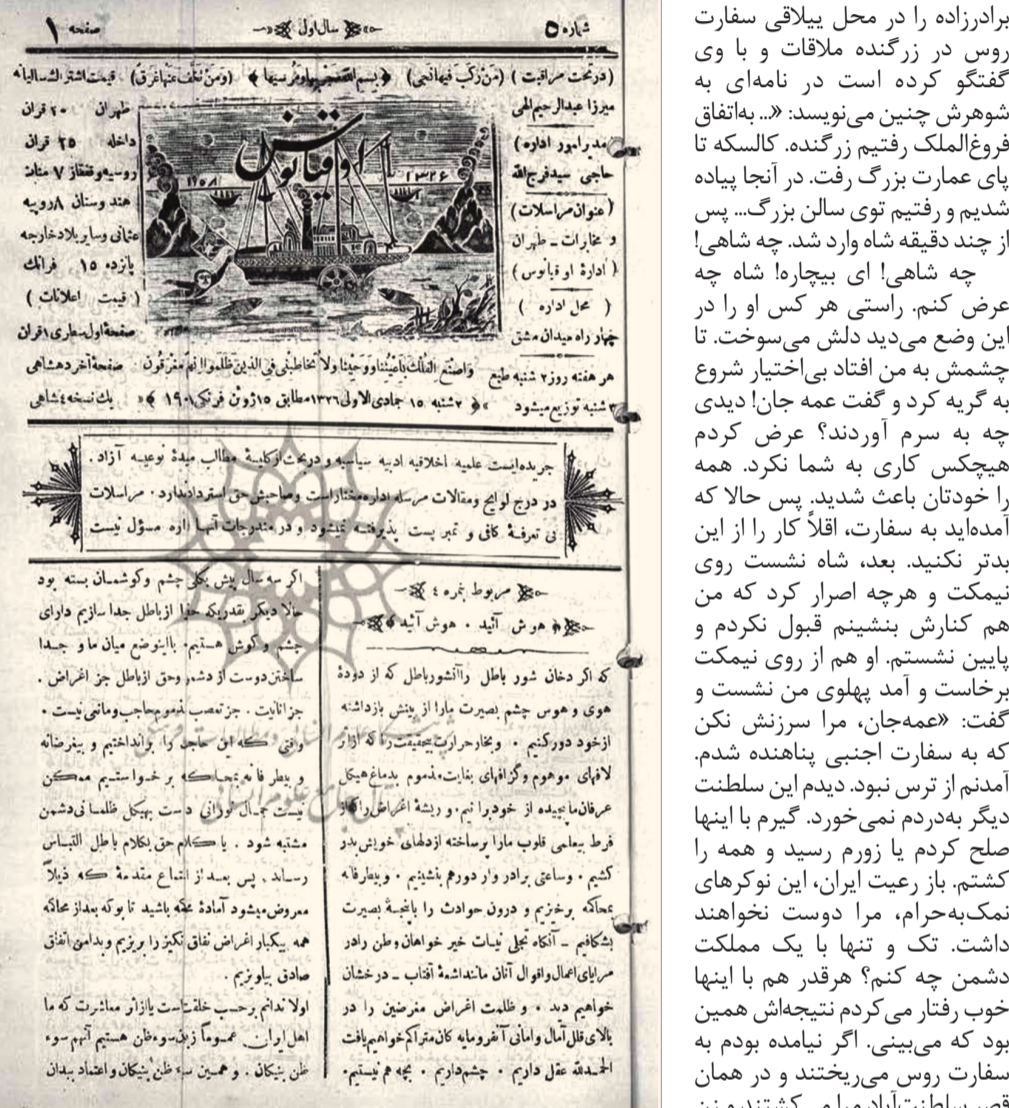 برادرزاده را در محل ییلاقی سفارت
روس در زرگنده ملاقات و با وی
گفتگو کرده است در نامه‌ای به
شوهرش چنین می‌نویسد: «... به‌اتفاق
فروغ‌الملک رفتیم زرگنده. کالسکه تا
پای عمارت بزرگ رفت. در آنجا پیاده
شدیم و رفتیم توی سالن بزرگ... پس
از چند دقیقه شاه وارد شد. چه شاهی!
چه شاهی! ای بیچاره! شاه چه
عرض کنم. راستی هر کس او را در
این وضع می‌دید دلش می‌سوخت. تا
چشمش به من افتاد بی‌اختیار شروع
به گریه کرد و گفت عمه جان! دیدی
چه به سرم آوردند؟ عرض کردم
هیچکس کاری به شما نکرد. همه
را خودتان باعث شدید. پس حالا که
آمده‌اید به سفارت، اقلاً کار را از این
بدتر نکنید. بعد، شاه نشست روی
نیمکت و هرچه اصرار کرد که من
هم کنارش بنشینم قبول نکردم و
پایین نشستم. او هم از روی نیمکت
برخاست و آمد پهلوی من نشست و
گفت: «عمه‌جان، مرا سرزنش نکن
که به سفارت اجنبی پناهنده شدم.
آمدنم از ترس نبود. دیدم این سلطنت
دیگر به‌دردم نمی‌خورد. گیرم با اینها
صلح کردم یا زورم رسید و همه را
کشتم. باز رعیت ایران، این نوکرهای
نمک‌به‌حرام، مرا دوست نخواهند
داشت. تک و تنها با یک مملکت
دشمن چه کنم؟ هرقدر هم با اینها
خوب رفتار می‌کردم نتیجه‌اش همین
بود که می‌بینی. اگر نیامده بودم به
سفارت روس می‌ریختند و در همان
شماره ۵
سال اول
صفحه ۱
(در تحت مراقبت)
میرزا عبدالرحیم الهی
مدیر امور اداره
حاجی سیدفرج‌الله
(عنوان مراسلات)
و مخابرات ـ طهران
(ادارهٔ اوقیانوس)
( محل اداره )
چهار راه میدان مشق
هر هفته روز ۲ شنبه طبع
۳ شنبه توزیع میشود
(من رکب فیها نجی) (بسم‌الله مجریها و مرسیها) (ومن تخلف عنها غرق)
اوقیانوس
۱۳۲۶
۱۹۰۸
واصنع الفلک باعیننا ووحینا ولا تخاطبنی فی الذین ظلموا انهم مغرقون
۲شنبه ۱۵ جمادی‌الاولی ۱۳۲۶ مطابق ۱۵ ژون فرنگی ۱۹۰۸
قیمت اشتراک سالیانه
طهران ۲۰ قران
داخله ۲۵ قران
روسیه و قفقاز ۷ منات
هندوستان ۸ روپیه
عثمانی و سایر بلاد خارجه
پانزده ۱۵ فرانک
( قیمت اعلانات )
صفحهٔ اول سطری ۱ قران
صفحهٔ آخر دهشاهی
یک نسخه ۴ شاهی
جریده‌ایست علمیه اخلاقیه ادبیه سیاسیه و در بحث از کلیهٔ مطالب مفیدهٔ نوعیه آزاد .
در درج لوایح ومقالات مرسله اداره مختار است وصاحبش حق استرداد ندارد . مراسلات
بی تعرفهٔ کافی و تمبر پست پذیرفته نمیشود و در مندرجات آنها اداره مسؤل نیست
مربوط بنمره ۴
هوش آئید . هوش آئید
که اگر دخان شور باطل را
هوی و هوس چشم بصیرت مارا از بینش بازداشته
ازخود دورکنیم . وبخار حرارت بیحقیقت را که از اثر
لافهای موهوم وگزافهای بغایت مذموم بدماغ هیکل
عرفان ما پیچیده از خود برانیم . و ریشهٔ اغراض را که از
فرط بیعلمی قلوب مارا برساخته ازدلهای خویش بدر
کشیم . وساعتی برادر وار دورهم بنشینیم . وبیطرفانه
بمحاکه برخیزیم و درون حوادث را بپنجهٔ بصیرت
بشکافیم ـ آنگاه تجلی نیات خیر خواهان وطن رادر
مرایای اعمال واقوال آنان مانند اشعهٔ آفتاب ـ درخشان
خواهیم دید . و ظلمت اغراض مغرضین را در
بالای قلل آمال وامانی آنفرومایه کان متراکم خواهیم یافت
الحمدلله عقل داریم . چشم داریم . بچه هم نیستیم.
اگر سه سال پیش بکلی چشم وگوشمان بسته بود
حالا دیگر بقدریکه حق را ازباطل جدا سازیم دارای
چشم و گوش هستیم. بااینوضع میان ما و جدا
ساختن دوست از دشمن وحق ازباطل جز اغراض .
جز انانیت . جز تعصب مذموم حاجب ومانعی نیست .
وقتی که این حاجب را برانداختیم و بیغرضانه
و بیطرفانه بمحاکه برخواستیم ممکن
نیست جمال نورانی دوست بهیکل ظلمانی دشمن
مشتبه شود . یا کلام حق بکلام باطل التباس
رساند . پس بعد از استماع مقدمهٔ که ذیلاً
معروض میشود آمادهٔ محاکه باشید تا بوکه بعداز محاکه
همه بیکبار اغراض نفاق انگیز را بریزیم وبدامن اتفاق
صادق بیاویزیم .
اولا ندانم برحسب خلقت است یا از اثر معاشرت که ما
اهل ایران عموماً رهین سوءظن هستیم آنهم سوء
ظن به نیکان . و همین سوء ظن به نیکان و اعتماد ببدان